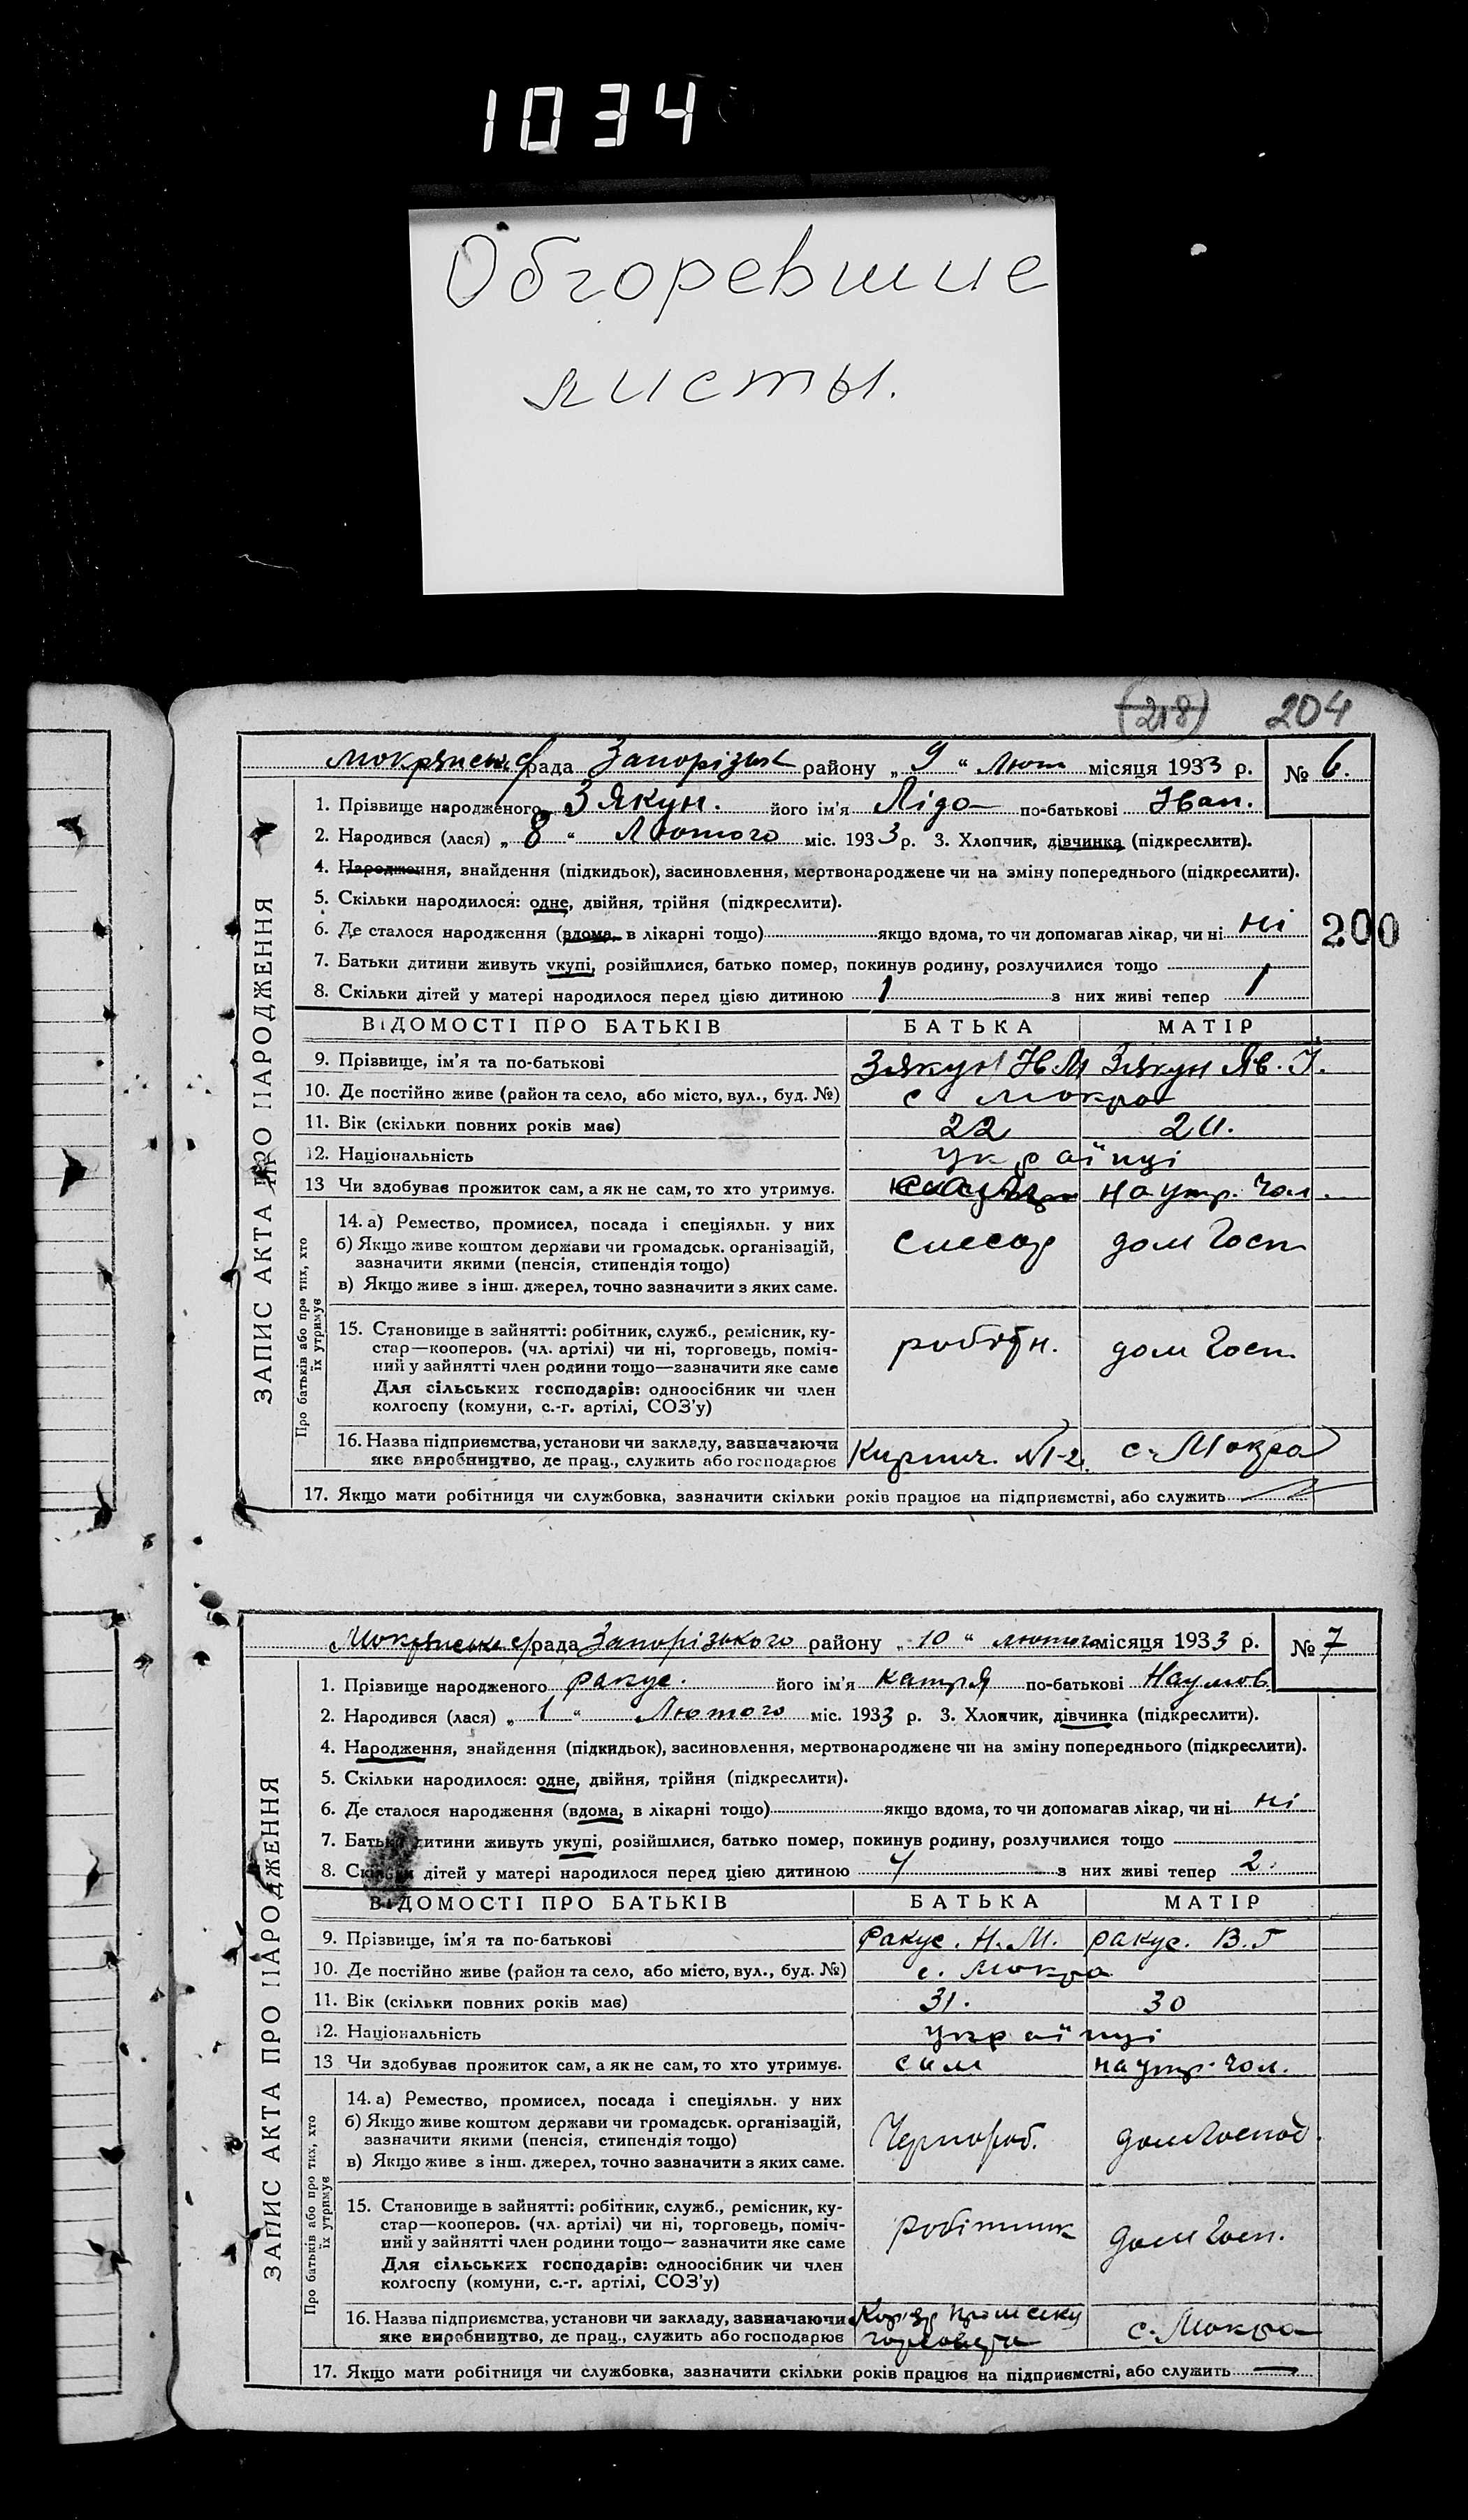 1034
Обгоревшие
листы.
(218) 204
Мокрянська с/рада Запорізьк району „ 9 “ Лют місяця 1933 р. № 6.
1. Прізвище народженого Зякун. його ім'я Ліда по-батькові Іван.
2. Народився (лася) „ 8 “ Лютого міс. 1933 р. 3. Хлопчик, дівчинка (підкреслити).
4. Народження, знайдення (підкидьок), засиновлення, мертвонароджене чи на зміну попереднього (підкреслити).
5. Скільки народилося: одне, двійня, трійня (підкреслити).
6. Де сталося народження (вдома, в лікарні тощо) якщо вдома, то чи допомагав лікар, чи ні ні
200
7. Батьки дитини живуть укупі, розійшлися, батько помер, покинув родину, розлучилися тощо
8. Скільки дітей у матері народилося перед цією дитиною 1 з них живі тепер 1
ВІДОМОСТІ ПРО БАТЬКІВ БАТЬКА МАТІР
9. Прізвище, ім'я та по-батькові Зякун Ів. М Зякун Яв. І.
10. Де постійно живе (район та село, або місто, вул., буд. №) с Мокра
11. Вік (скільки повних років має) 22 20.
12. Національність українці
13 Чи здобував прожиток сам, а як не сам, то хто утримує. на утр. чол.
14. а) Ремество, промисел, посада і спеціяльн. у них
б) Якщо живе коштом держави чи громадськ. організацій, слесар дом Госп
зазначити якими (пенсія, стипендія тощо)
в) Якщо живе з інш. джерел, точно зазначити з яких саме.
15. Становище в зайнятті: робітник, служб., ремісник, ку-
стар—кооперов. (чл. артілі) чи ні, торговець, поміч- робітн. дом Госп.
ний у зайнятті член родини тощо—зазначити яке саме
Для сільських господарів: одноосібник чи член
колгоспу (комуни, с.-г. артілі, СОЗ'у)
16. Назва підприємства, установи чи закладу, зазначаючи
яке виробництво, де прац., служить або господарює Кирпич. №1-2. с. Мокра
17. Якщо мати робітниця чи службовка, зазначити скільки років працює на підприємстві, або служить
ЗАПИС АКТА ПРО НАРОДЖЕННЯ
Про батьків або про тих, хто
їх утримує
Мокрянська с/рада Запорізького району „ 10 “ лютого місяця 1933 р. № 7
1. Прізвище народженого Ракус. його ім'я Катря по-батькові Наумов
2. Народився (лася) „ 1 “ Лютого міс. 1933 р. 3. Хлопчик, дівчинка (підкреслити).
4. Народження, знайдення (підкидьок), засиновлення, мертвонароджене чи на зміну попереднього (підкреслити).
5. Скільки народилося: одне, двійня, трійня (підкреслити).
6. Де сталося народження (вдома, в лікарні тощо) якщо вдома, то чи допомагав лікар, чи ні ні
7. Батьки дитини живуть укупі, розійшлися, батько помер, покинув родину, розлучилися тощо
8. Скільки дітей у матері народилося перед цією дитиною з них живі тепер 2.
ВІДОМОСТІ ПРО БАТЬКІВ БАТЬКА МАТІР
9. Прізвище, ім'я та по-батькові Ракус. Н. М. Ракус. В. Г
10. Де постійно живе (район та село, або місто, вул., буд. №) с. Мокра
11. Вік (скільки повних років має) 31. 30
12. Національність українці
13 Чи здобував прожиток сам, а як не сам, то хто утримує. сам на утр. чол.
14. а) Ремество, промисел, посада і спеціяльн. у них
б) Якщо живе коштом держави чи громадськ. організацій, Чернороб. дом Господ.
зазначити якими (пенсія, стипендія тощо)
в) Якщо живе з інш. джерел, точно зазначити з яких саме.
15. Становище в зайнятті: робітник, служб., ремісник, ку-
стар—кооперов. (чл. артілі) чи ні, торговець, поміч- робітник дом Госп.
ний у зайнятті член родини тощо—зазначити яке саме
Для сільських господарів: одноосібник чи член
колгоспу (комуни, с.-г. артілі, СОЗ'у)
16. Назва підприємства, установи чи закладу, зазначаючи
яке виробництво, де прац., служить або господарює с. Мокра
17. Якщо мати робітниця чи службовка, зазначити скільки років працює на підприємстві, або служить —
ЗАПИС АКТА ПРО НАРОДЖЕННЯ
Про батьків або про тих, хто
їх утримує